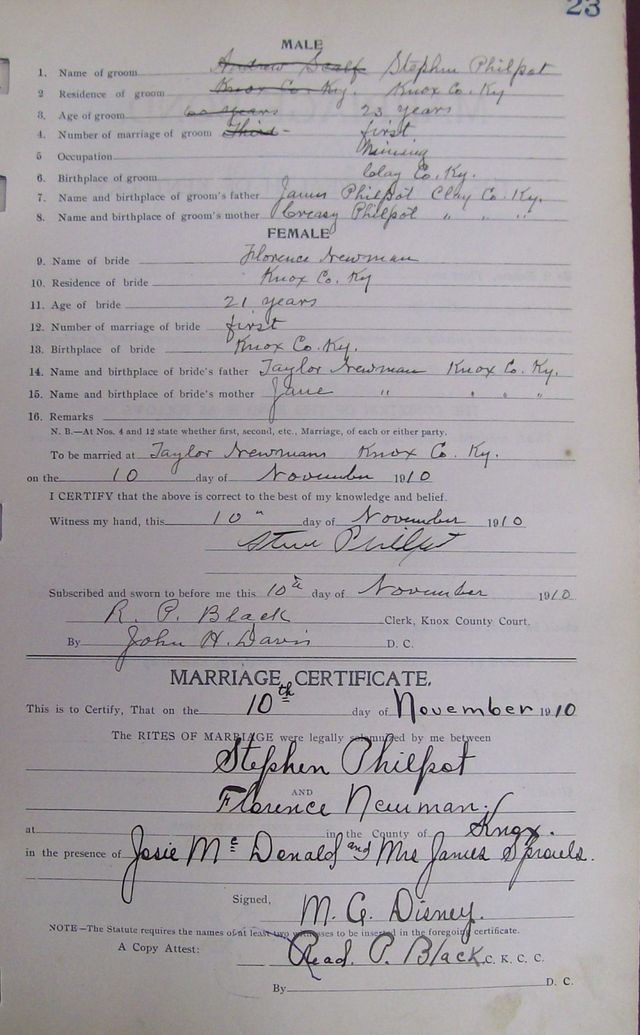 23
MALE
1. Name of groom Andrew Scalf Stephen Philpot
2 Residence of groom Knox Co. Ky. Knox Co. Ky
3. Age of groom 60 years 23 years
4. Number of marriage of groom Third - first
5 Occupation Mining
6. Birthplace of groom Clay Co. Ky.
7. Name and birthplace of groom's father James Philpot Clay Co. Ky.
8. Name and birthplace of groom's mother Creasy Philpot " " "
FEMALE
9. Name of bride Florence Newman
10. Residence of bride Knox Co. Ky
11. Age of bride 21 years
12. Number of marriage of bride first
13. Birthplace of bride Knox Co. Ky.
14. Name and birthplace of bride's father Taylor Newman Knox Co. Ky.
15. Name and birthplace of bride's mother Jane " " " "
16. Remarks
N. B.—At Nos. 4 and 12 state whether first, second, etc., Marriage, of each or either party.
To be married at Taylor Newmans Knox Co. Ky.
on the 10 day of November 1910
I CERTIFY that the above is correct to the best of my knowledge and belief.
Witness my hand, this 10 " day of November 1910
Steve Philpot
Subscribed and sworn to before me this 10th day of November 1910
R. P. Black Clerk, Knox County Court.
By John H. Davis D. C.
MARRIAGE CERTIFICATE.
This is to Certify, That on the 10th day of November 1910
The RITES OF MARRIAGE were legally solemnized by me between
Stephen Philpot
AND
Florence Newman.
at in the County of Knox.
in the presence of Josie Mc Donald and Mrs James Sprouls.
Signed, M. G. Disney.
NOTE—The Statute requires the names of at least two witnesses to be inserted in the foregoing certificate.
A Copy Attest: Read. P. Black C. K. C. C.
By D. C.